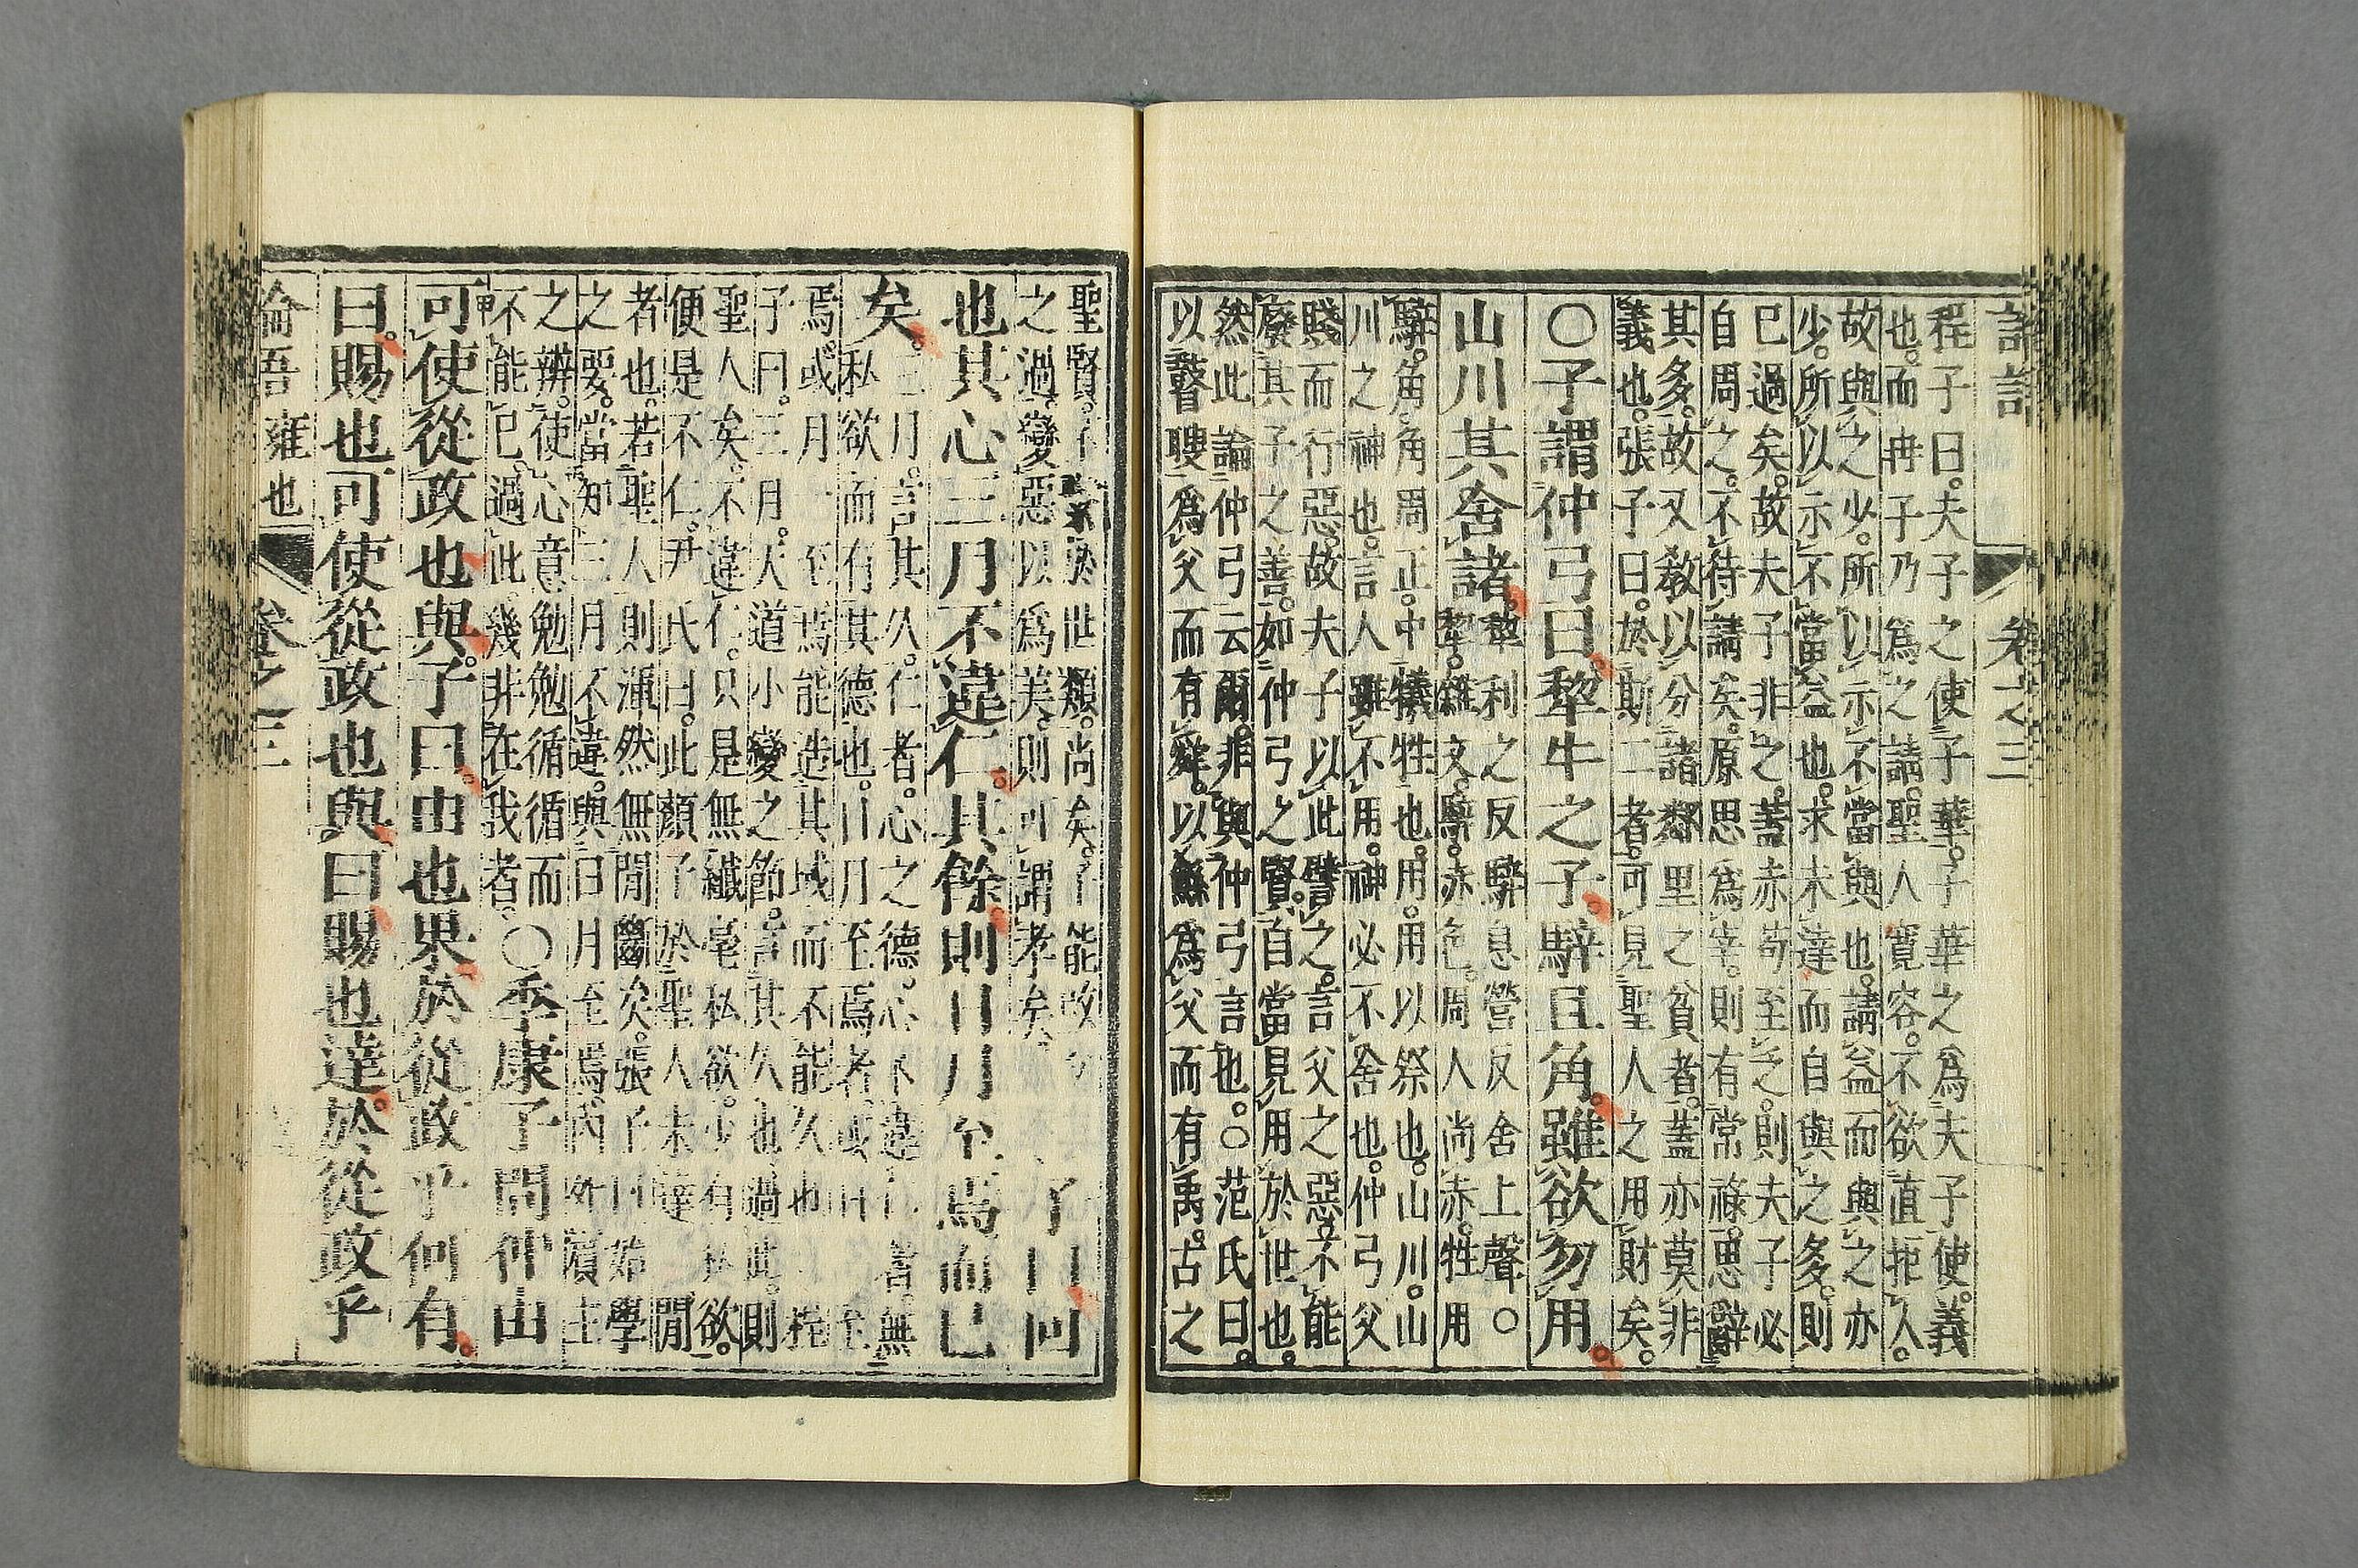 論語 卷之三
程子曰。夫子之使子華。子華之爲夫子使。義
也。而冉子乃爲之請。聖人寬容。不欲直拒人。
故與之少。所以示不當與也。請益而與之亦
少。所以示不當益也。求未達而自與之多。則
已過矣。故夫子非之。蓋赤苟至乏。則夫子必
自周之。不待請矣。原思爲宰。則有常祿。思辭
其多。故又敎以分諸鄰里之貧者。蓋亦莫非
義也。張子曰。於斯二者。可見聖人之用財矣。
○子謂仲弓曰。犂牛之子。騂且角。雖欲勿用。
山川其舍諸。
犂利之反騂息營反舍上聲。○
犂。雜文。騂。赤色。周人尚赤。牲用
騂。角。角周正。中犧牲也。用。用以祭也。山川。山
川之神也。言人雖不用。神必不舍也。仲弓父
賤而行惡。故夫子以此譬之。言父之惡。不能
廢其子之善。如仲弓之賢。自當見用於世也。
然此論仲弓云爾。非與仲弓言也。○范氏曰。
以瞽瞍爲父而有舜。以鯀爲父而有禹。古之
聖賢。不係於世類。尚矣。子能改父
之過。變惡以爲美。則可謂孝矣。
○子曰回
也其心三月不違仁。其餘。則日月至焉而已
矣。
三月。言其久。仁者。心之德。心不違仁者。無
私欲而有其德也。日月至焉者。或日一至
焉。或月一至焉。能造其域而不能久也。○程
子曰。三月。天道小變之節。言其久也。過此。則
聖人矣。不違仁。只是無纖毫私欲。少有私欲。
便是不仁。尹氏曰。此顏子於聖人未達一閒
者也。若聖人則渾然無閒斷矣。張子曰。始學
之要。當知三月不違。與日月至焉。內外賓主
之辨。使心意勉勉循循而
不能已。過此。幾非在我者。
○季康子問仲由
可使從政也與。子曰。由也果。於從政乎何有。
曰。賜也可使從政也與。曰賜也達。於從政乎
論吾 雍也 卷之三